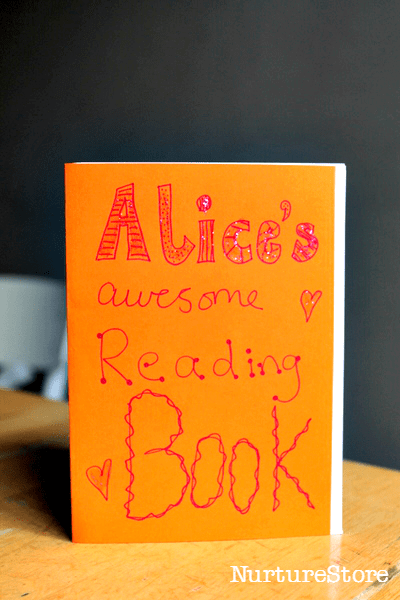 Alice's
awesome
Reading
Book
NurtureStore